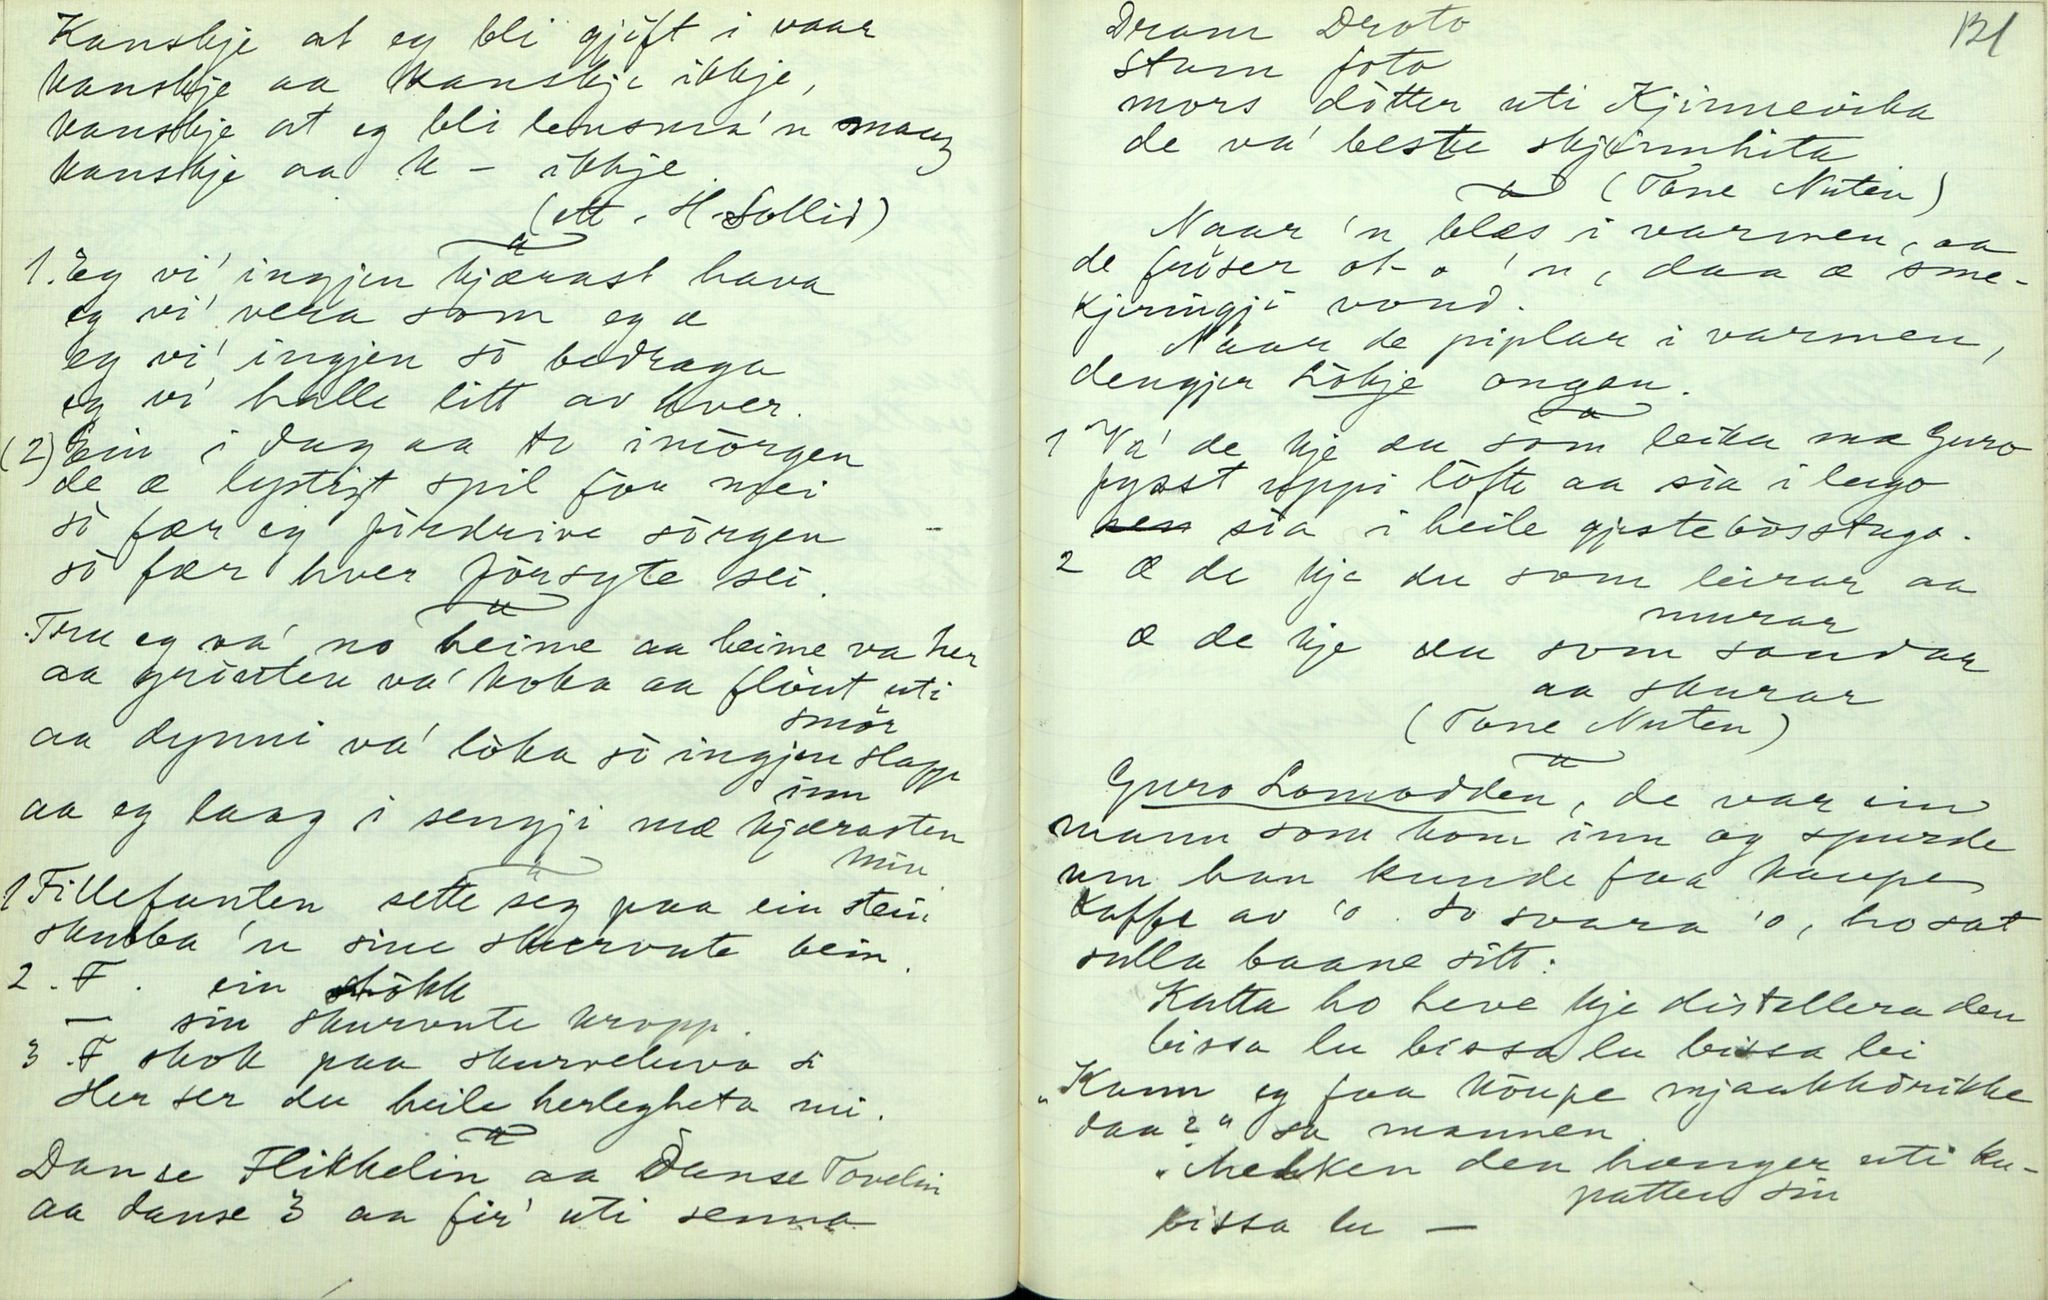 Kanskje at eg bli gjift i vaar
kanskje aa kanskje ikkje,
kanskje at eg bli lensma'n mauz
kanskje aa k - ikkje.
(ett. H. Sollid)
1. Eg vi' ingjen kjærast hava
eg vi' vera som eg æ
eg vi' ingjen sò bedraga
eg vi' halle litt av kver.
(2) Ein i dag aa to imòrgen
de æ lystigt spil for mei
sò fær eg fòrdrive sòrgen
sò fær hver fòrsyte sei.
Tru eg va' no heime aa heime va her
aa grauten va' koka aa fløut uti
smør
aa dynni va' lòka sò ingjen slapp
inn
aa eg laag i sengji mæ kjærasten
min.
1 Fillefanten sette seg paa ein stein
skubba 'n sine skurvute bein.
2. F. ein stòkk
— sin skurvute kropp.
3. F skok paa skurveluva si
Her ser du heile herlegheta mi.
Danse Flikkelin aa Danse Tovelin
aa danse 3 aa fir' uti senna
131
Dram Droto
stam foto
mors dòtter uti Kjinnevika
de va' beste skjinnhita
(Tone Nuten)
Naar 'n blæs i varmen, aa
de fniser at o 'n, daa æ sme-
kjeringji vond.
Naar de piplar i varmen,
dengjer Lòkje ongan.
1 Va' de kje du som leika mæ Guro
fysst uppi lòfte aa sia i lego
sia i heile gjestebòsstugo.
2 Æ de kje du som leirar aa
murar
æ de kje du som sandar
aa skurar
(Tone Nuten)
Guro Lomodden, de var ein
mann som kom inn og spurde
um han kunde faa kaupe
kaffe av 'o. So svara 'o, ho sat
sulla baane sitt:
Katta ho heve kje distellera den
bissa lu bissa lu bissa lei
"Kann eg faa kòupe mjaakkòrikke
daa?" sa mannen.
"Melken den hænger uti ku-
patten sin
bissa lu —